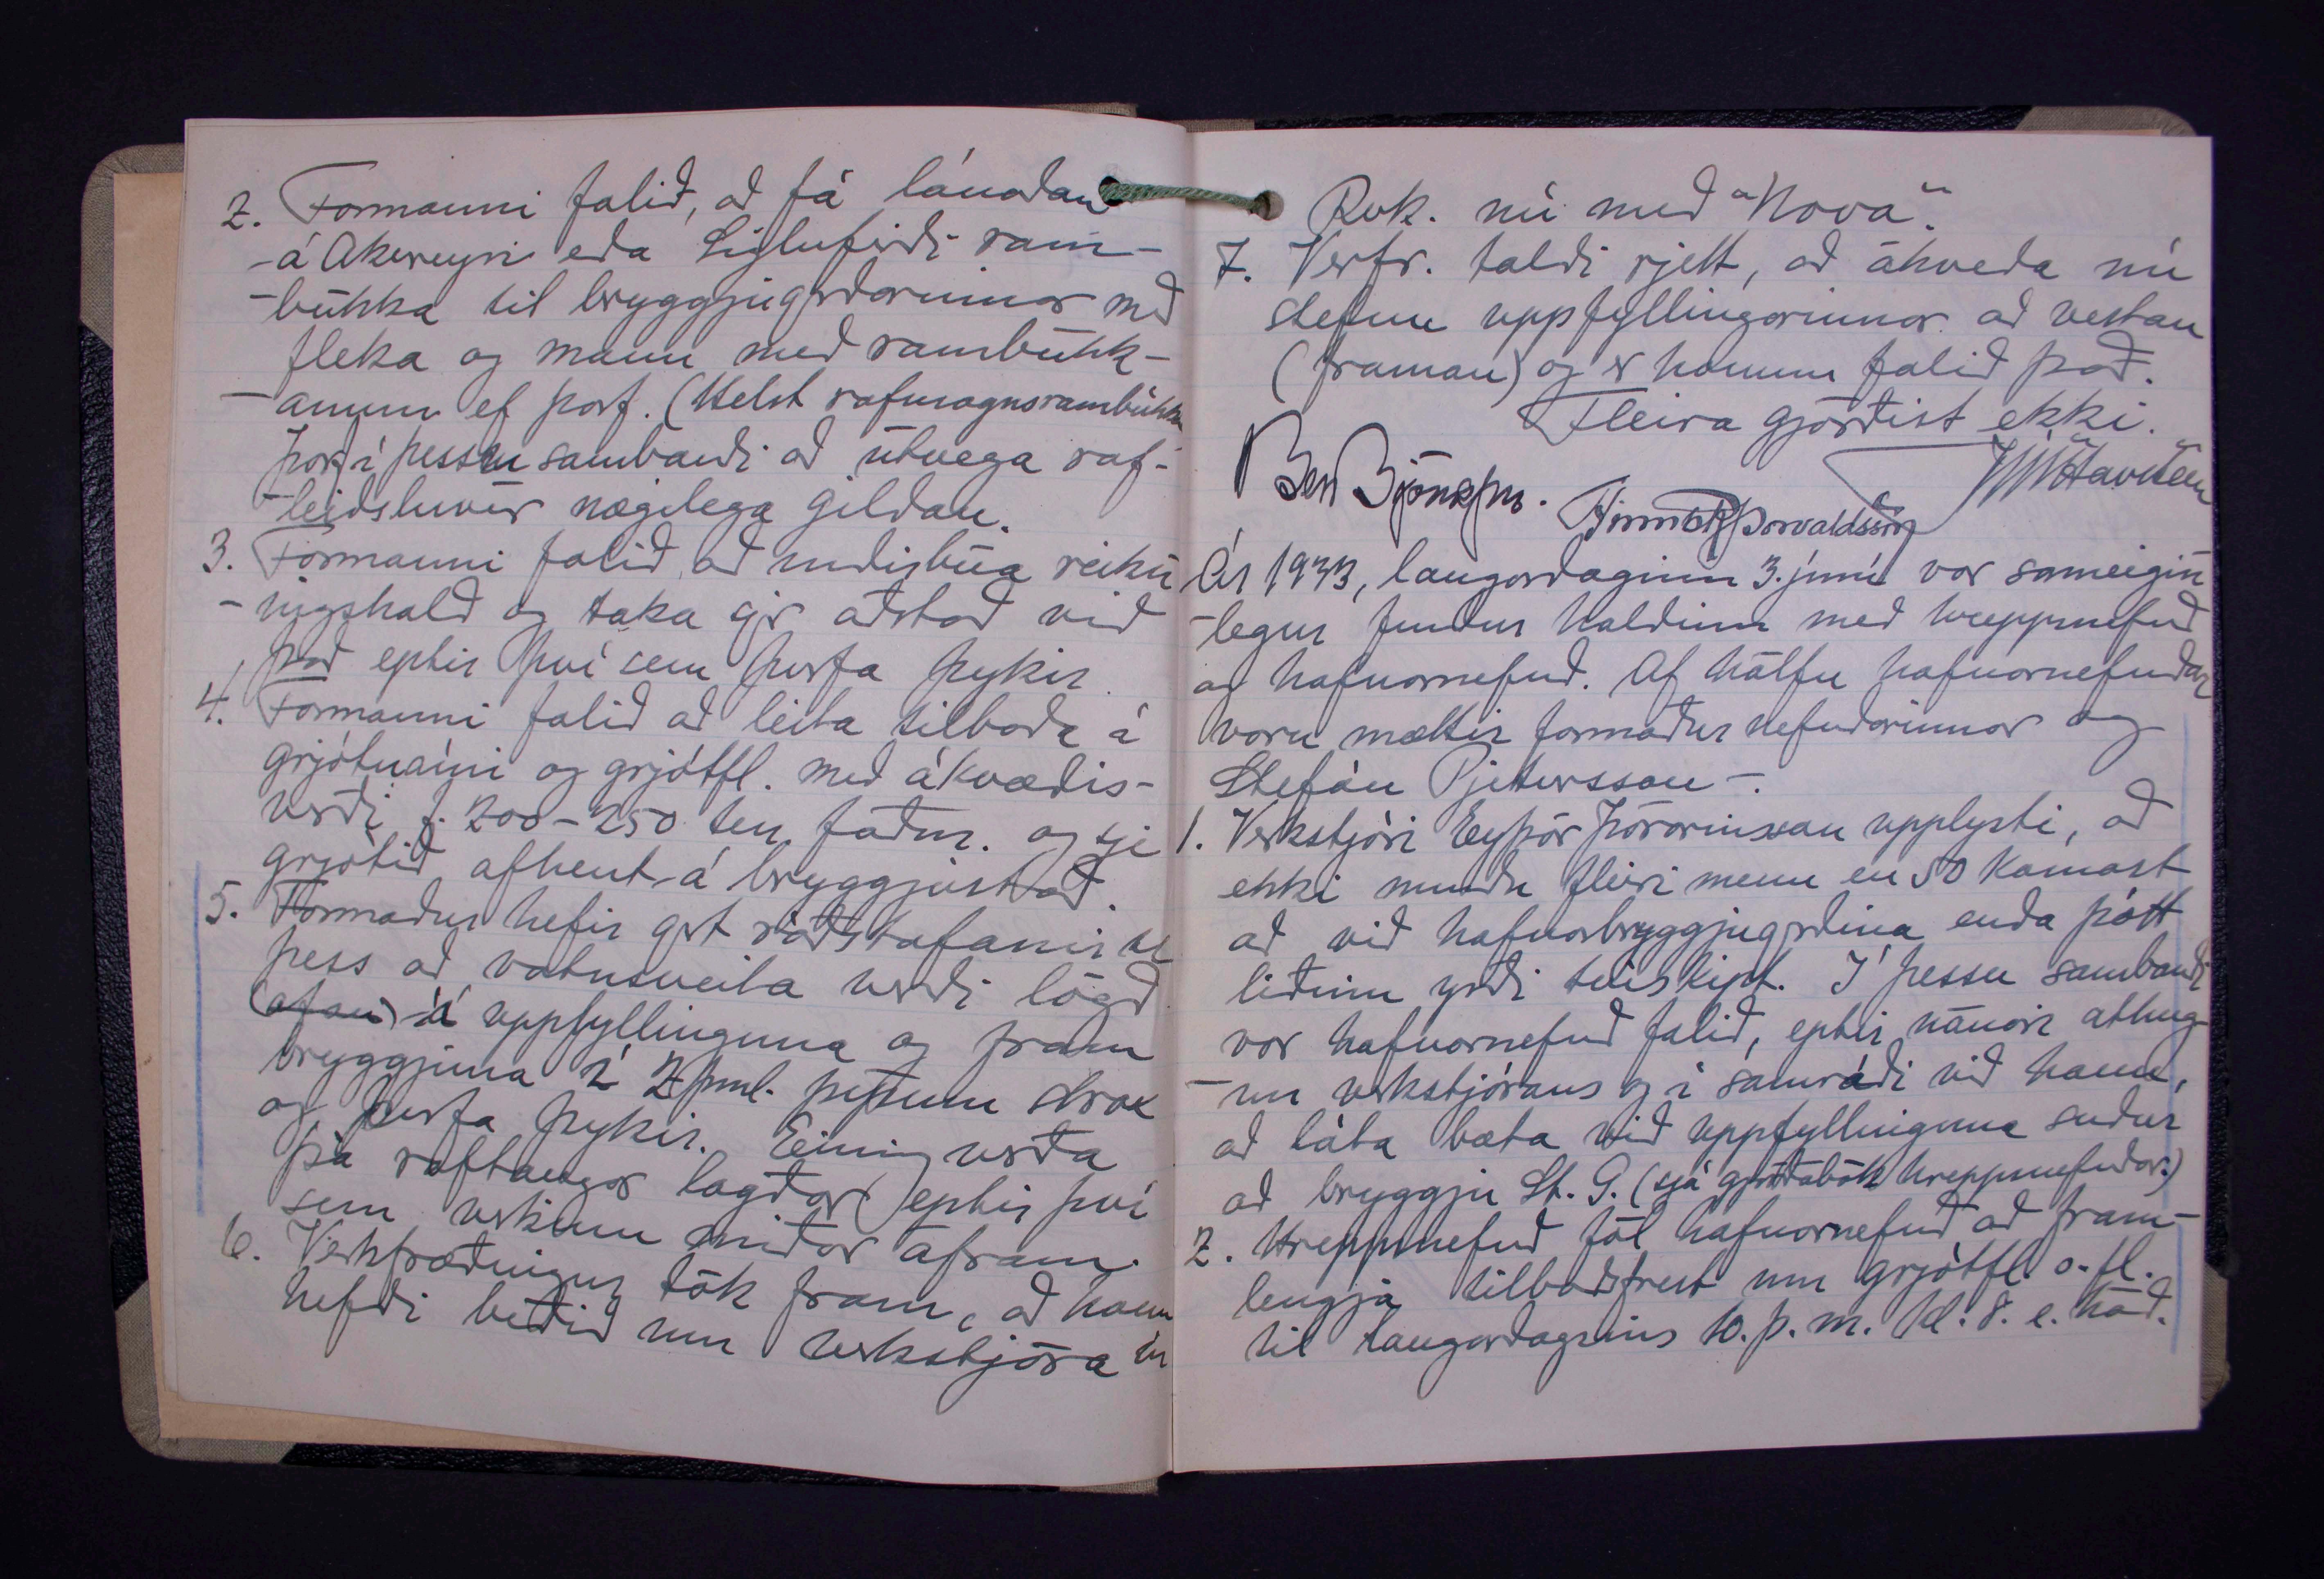 2. Formanni falið, að fá lánaðan
- á Akureyri eða Siglufirði ram-
- búkka til bryggjugerðarinnar með
fleka og mann með rambúkk-
- anum ef þarf. (Helst rafmagnsrambúkka
Þarf í þessu sambandi að útvega raf-
- leiðsluvír nægilega gildan.
3. Formanni falið að undirbúa reikn
- ingshald og taka sjer aðstoð við
það eptir því sem þurfa þykir.
4. Formanni falið að leita tilboða á
grjótnámi og grjótfl. með ákvæðis-
verði f. 200-250 ten. faðm. og sje
grjótið afhent á bryggjustað.
5. Formaður hefir gert ráðstafanir til
þess að vatnsveita verði lögð
(ofan) á uppfyllinguna og fram
bryggjuna í 2 þuml. pípum strax
og þurfa þykir. Einnig verða
þá raftaugar lagðar eptir því
sem verkinu miðar áfram.
6. Verkfræðingur tók fram, að hann
hefði beðið um verkstjóra úr
Rvk. nú með "Nova".
7. Verkfr. taldi rjett, að ákveða nú
stefnu uppfyllingarinnar að vestan
(framan) og er honum falið það.
Fleira gjörðist ekki.
J. Havsteen
Ben Björnsson.
Finnbogi Þorvaldsson
Ár 1933, laugardaginn 3. júní var sameigin
- legur fundur haldinn með hreppsnefnd
og hafnarnefnd. Af hálfu hafnarnefndar
voru mættir formaður nefndarinnar og
Stefán Pjetursson -.
1. Verkstjóri Eyþór Þórarinsson upplýsti, að
ekki mundu fleiri menn en 50 komast
að við hafnarbryggjugerðina enda þótt
liðinu yrði tvískipt. Í þessu sambandi
var hafnarnefnd falið, eptir nánari athug-
- un verkstjórans og í samráði við hann,
að láta bæta við uppfyllinguna suður
að bryggju St. G. (sjá gjörðabók hreppsnefndar.)
2. Hreppsnefnd fól hafnarnefnd að fram-
lengja tilboðsfrest um grjótfl. o.fl.
til laugardagsins 10. þ. m. kl. 8. e. hád.